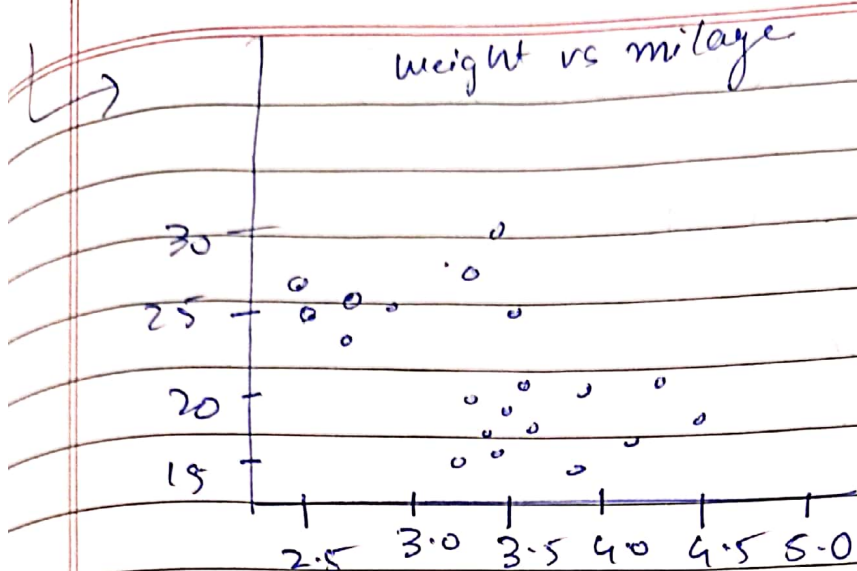 weight vs milage
30
25
20
15
2.5 3.0 3.5 4.0 4.5 5.0